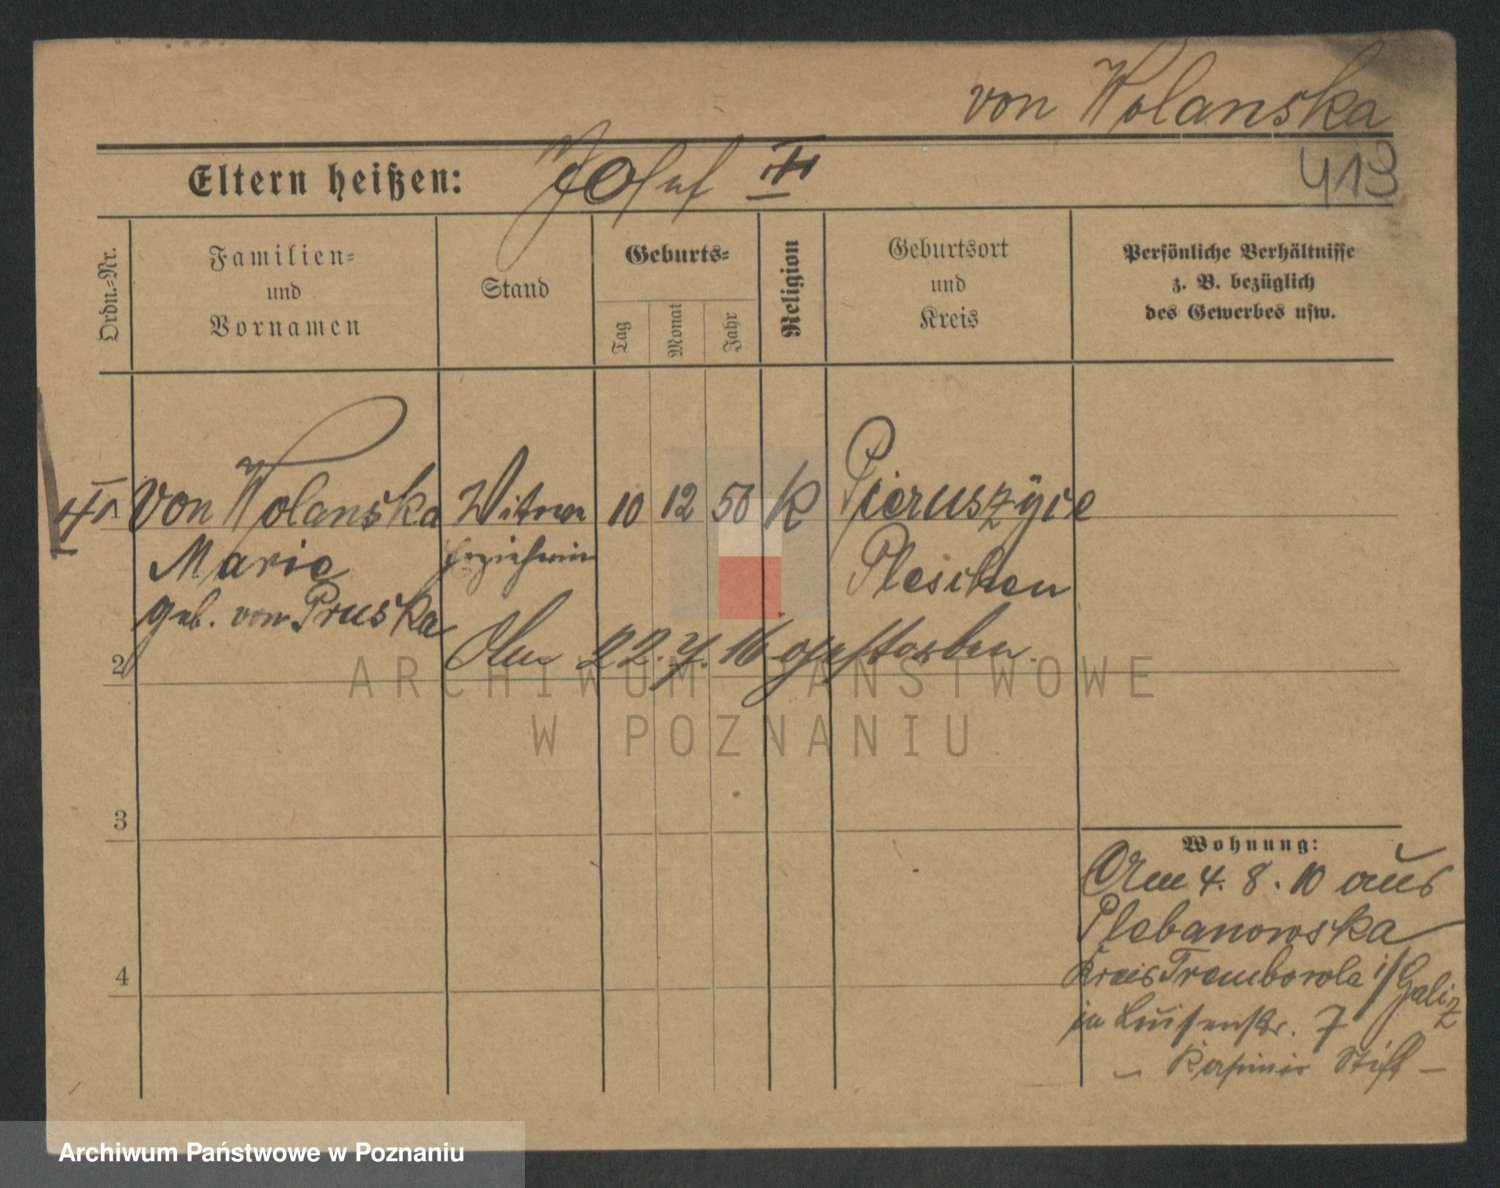 von Wolanska
413
Eltern heißen: Josef
Ordn.-Nr.
Familien=
und
Vornamen
Stand
Geburts=
Tag
Monat
Jahr
Religion
Geburtsort
und
Kreis
Persönliche Verhältnisse
z. B. bezüglich
des Gewerbes usw.
1 von Wolanska Witwe 10 12 50 K Pieruszyce
Marie Erzieherin Pleschen
geb. von Pruska
Am 22. 7. 16 gestorben.
2
3
4
Wohnung:
Am 4. 8. 10 aus
Plebanowska
Kreis Trembowla i/Galiz
in Luisenstr. 7
– Kasimir Stift –
ARCHIWUM PAŃSTWOWE
W POZNANIU
Archiwum Państwowe w Poznaniu